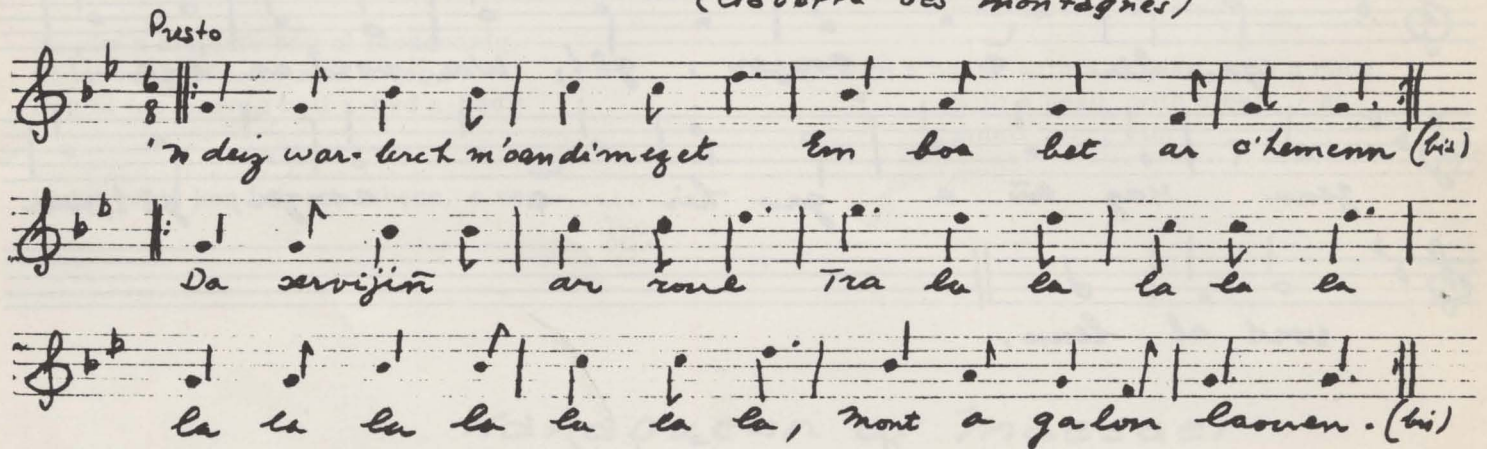 (Gavotte des montagnes)
Presto
6
8
'n deiz war-lerch m'oan dimezet Em boa bet ar c'hemenn (bis)
Da servijiñ ar roue Tra la la la la la
la la la la la la la, mont a galon laouen. (bis)